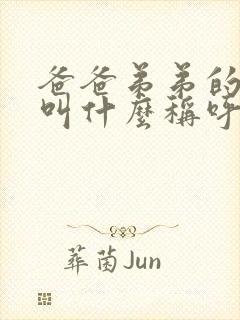 爸爸弟弟的
叫什麼稱呼
葬茵Jun